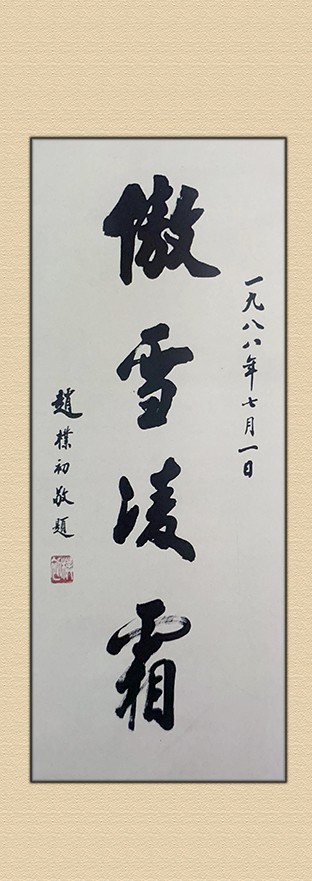 一九八八年七月一日
傲雪凌霜
趙樸初敬題